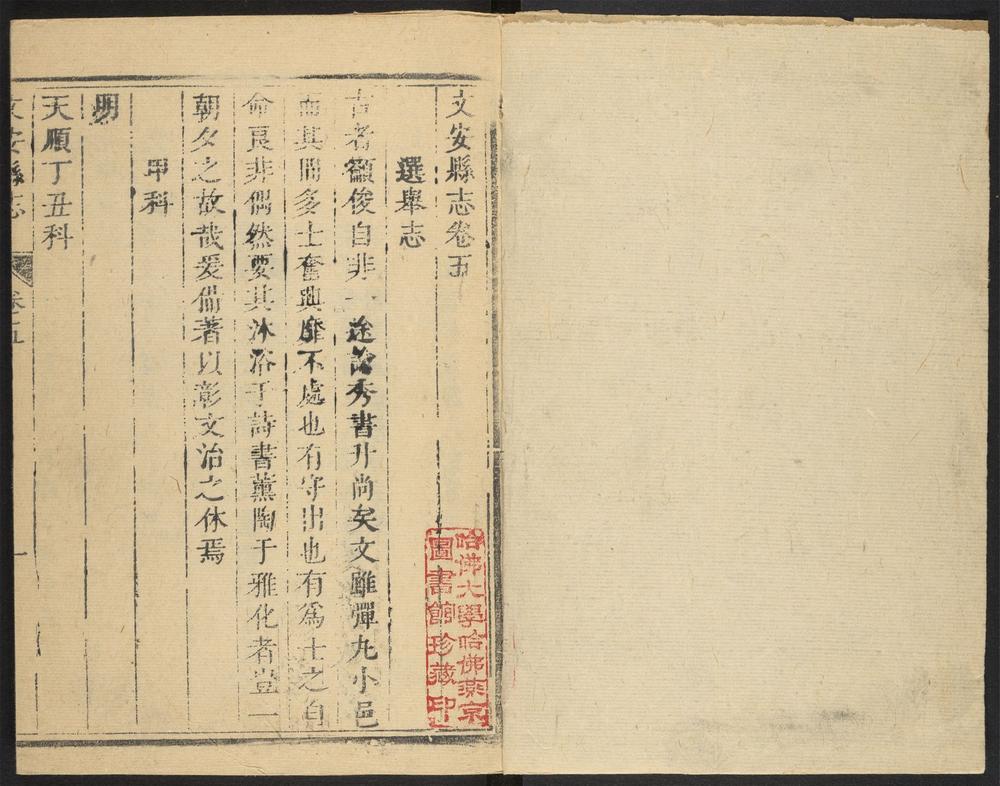 文安縣志卷五
選舉志
古者籲俊自非一途論秀書升尚矣文雖彈丸小邑
而其間多士奮興靡不處也有守出也有為士之自
命良非偶然要其沐浴于詩書薰陶于雅化者豈一
朝夕之故哉爰備著以彰文治之休焉
甲科
明
天順丁丑科
文安縣志
卷五
一
哈佛大學哈佛燕京
圖書館珍藏印